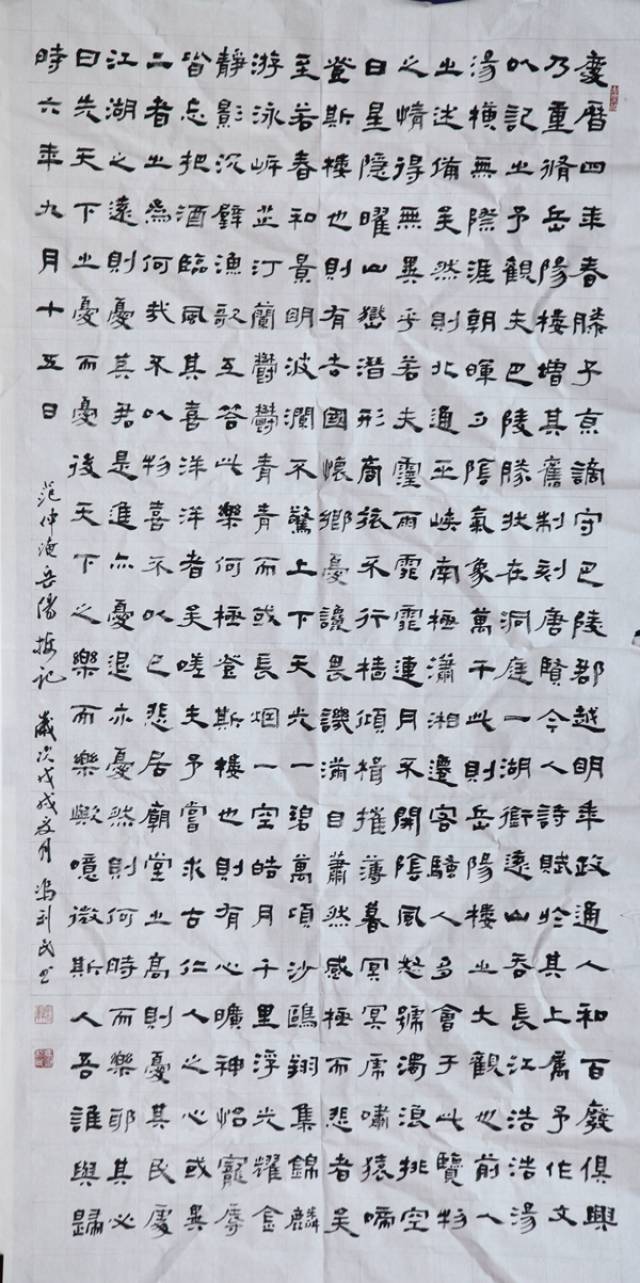 慶曆四年春滕子京謫守巴陵郡越明年政通人和百廢俱興
乃重脩岳陽樓增其舊制刻唐賢今人詩賦於其上屬予作文
以記之予觀夫巴陵勝狀在洞庭一湖銜遠山吞長江浩浩湯
湯橫無際涯朝暉夕陰氣象萬千此則岳陽樓之大觀也前人
之述備矣然則北通巫峽南極瀟湘遷客騷人多會于此覽物
之情得無異乎若夫霪雨霏霏連月不開陰風怒號濁浪排空
日星隱曜山巒潛形商旅不行檣傾楫摧薄暮冥冥虎嘯猿啼
登斯樓也則有去國懷鄉憂讒畏譏滿目蕭然感極而悲者矣
至若春和景明波瀾不驚上下天光一碧萬頃沙鷗翔集錦鱗
游泳岸芷汀蘭鬱鬱青青而或長烟一空皓月千里浮光耀金
靜影沉璧漁歌互答此樂何極登斯樓也則有心曠神怡寵辱
皆忘把酒臨風其喜洋洋者矣嗟夫予嘗求古仁人之心或異
二者之為何哉不以物喜不以己悲居廟堂之高則憂其民處
江湖之遠則憂其君是進亦憂退亦憂然則何時而樂耶其必
曰先天下之憂而憂後天下之樂而樂歟噫微斯人吾誰與歸
時六年九月十五日
范仲淹岳陽樓記 歲次戊戌夏月 馮利民書